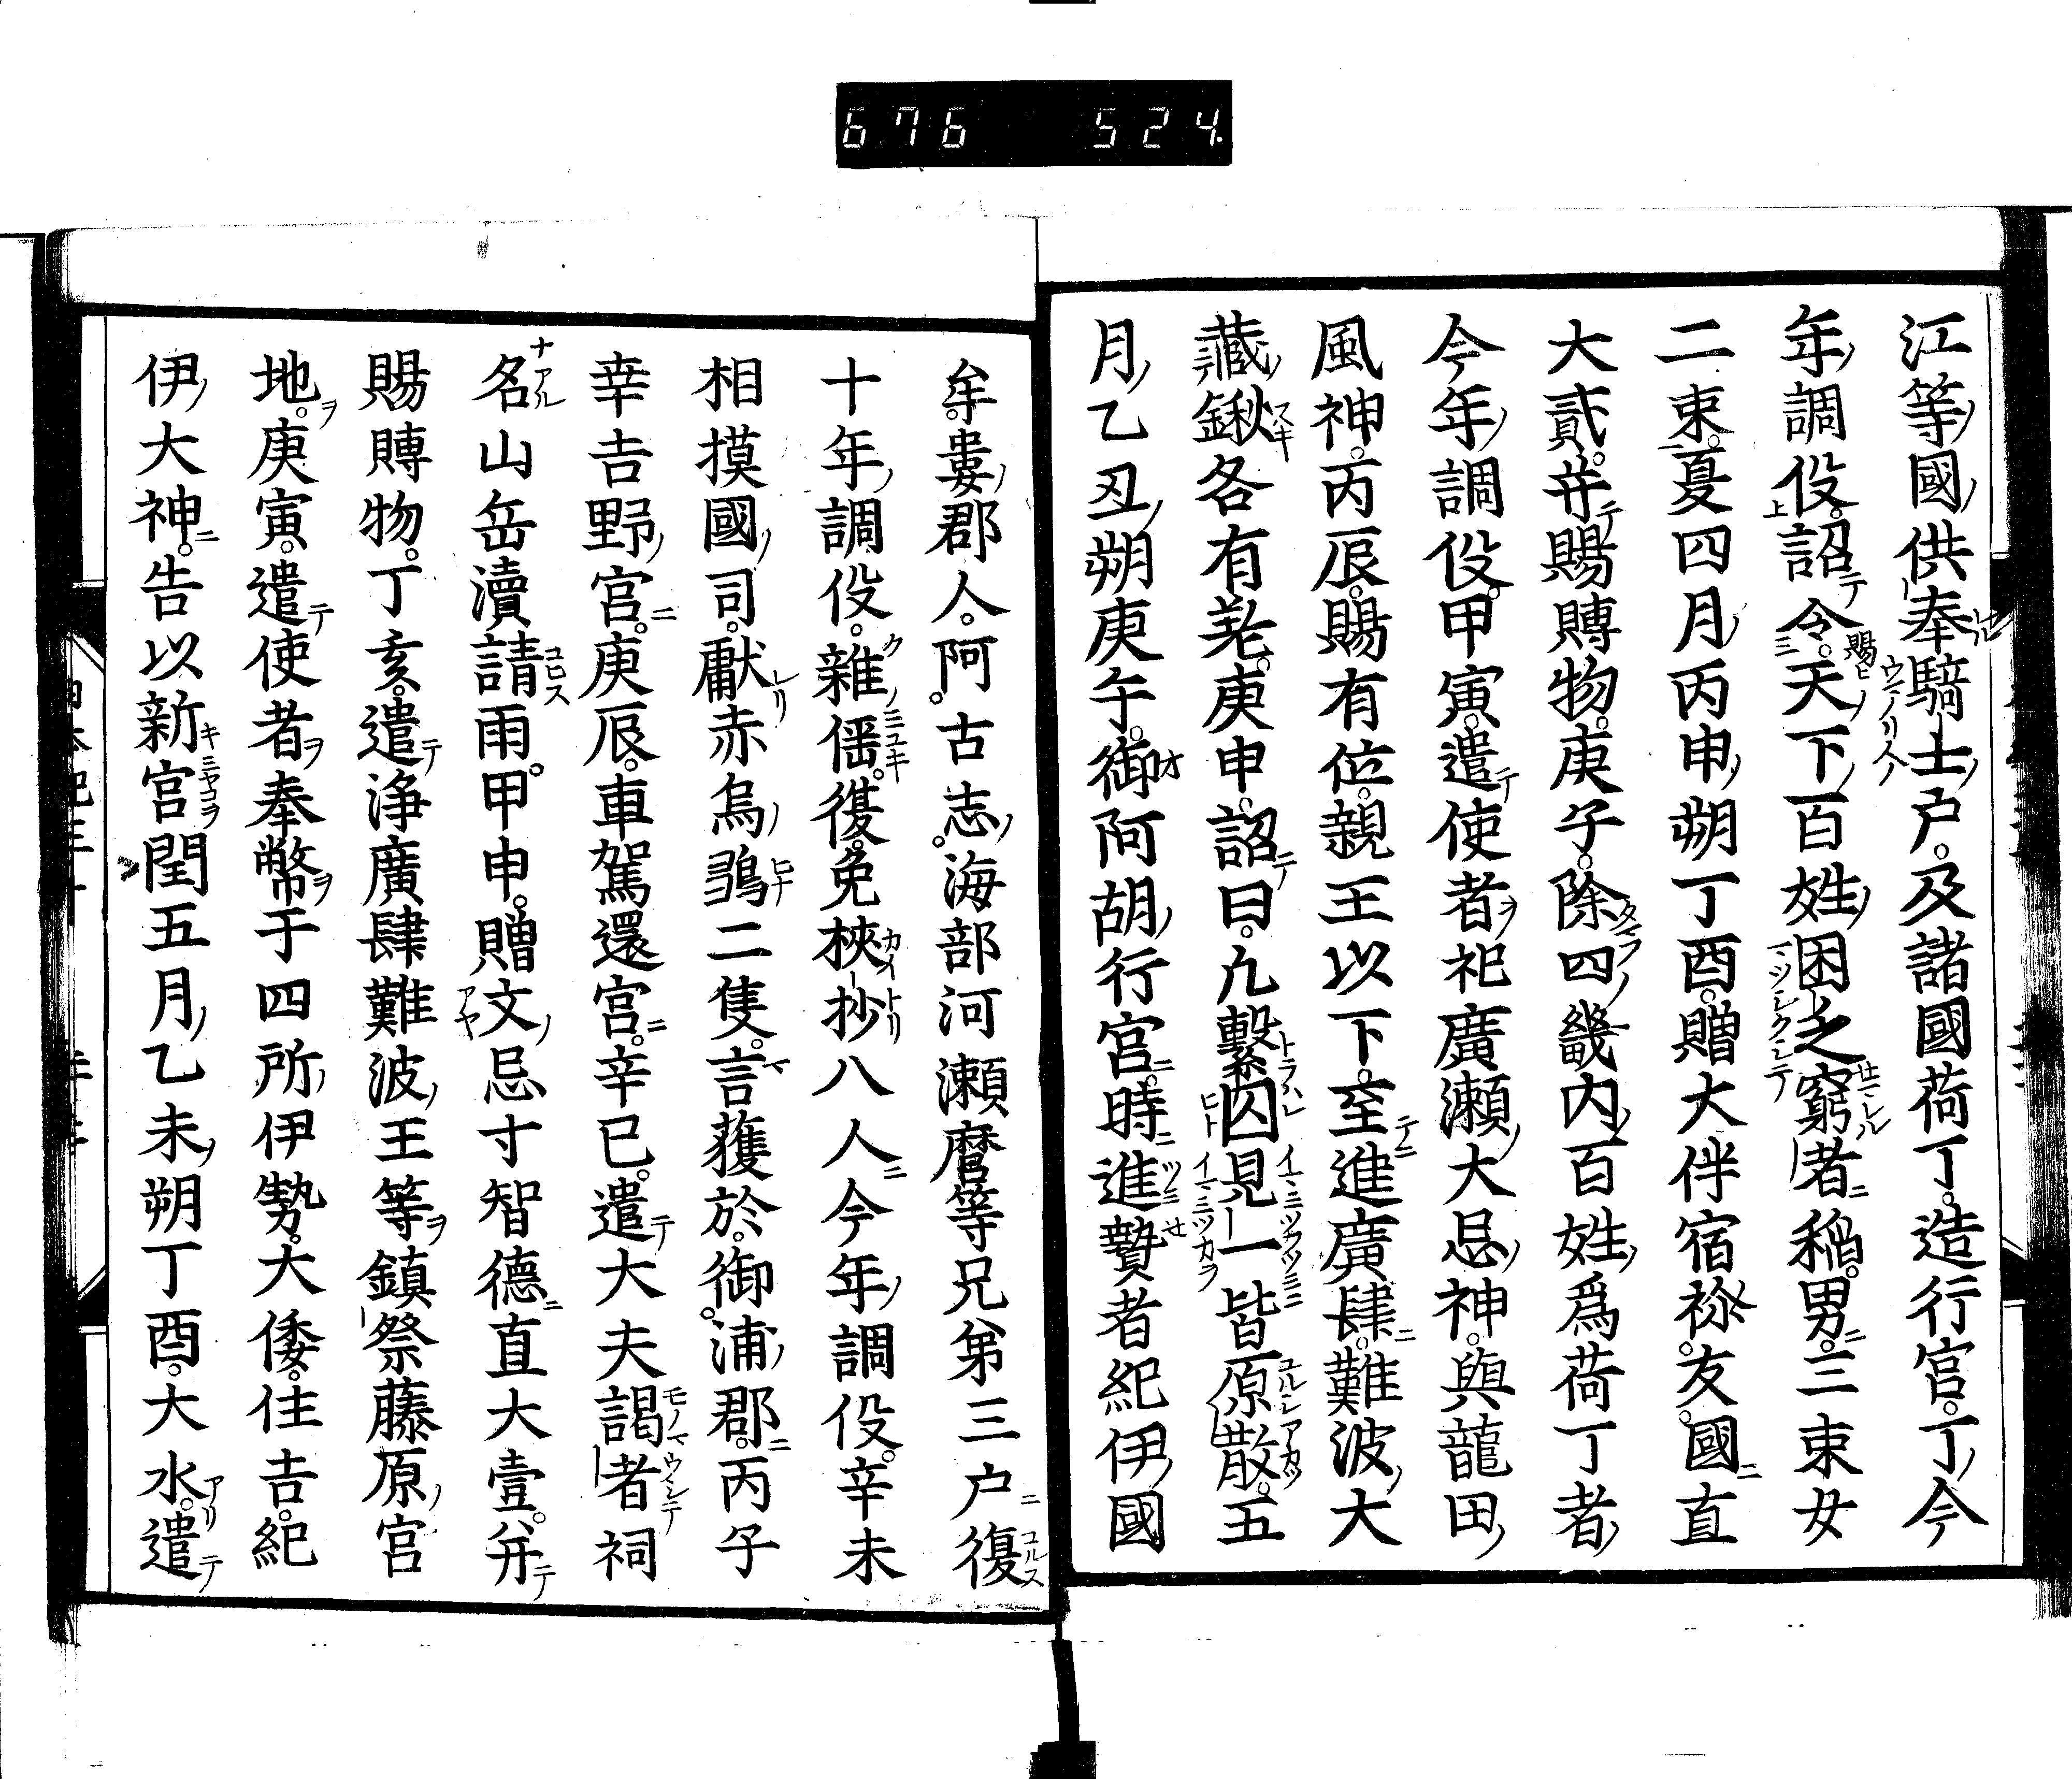 676 524.
江等國供奉騎士戸及諸國荷丁造行宮丁今
年調役詔令天下百姓困乏窮者稻男三束女
二束夏四月丙申朔丁酉贈大伴宿祢友國直
大貳并賜賻物庚子除四畿内百姓爲荷丁者
今年調役甲寅遣使者祀廣瀬大忌神與龍田
風神丙辰賜有位親王以下至進廣肆難波大
藏鍬各有差庚申詔曰凢繫囚見一皆原散五
月乙丑朔庚午御阿胡行宮時進贄者紀伊國
牟婁郡人阿古志海部河瀬麿等兄弟三戸復
十年調役雜徭復免挾抄八人今年調役辛未
相摸國司獻赤烏鶵二隻言獲於御浦郡丙子
幸吉野宮庚辰車駕還宮辛巳遣大夫謁者祠
名山岳瀆請雨甲申贈文忌寸智德直大壹并
賜賻物丁亥遣浄廣肆難波王等鎮祭藤原宮
地庚寅遣使者奉幣于四所伊勢大倭住吉紀
伊大神告以新宮閏五月乙未朔丁酉大水遣